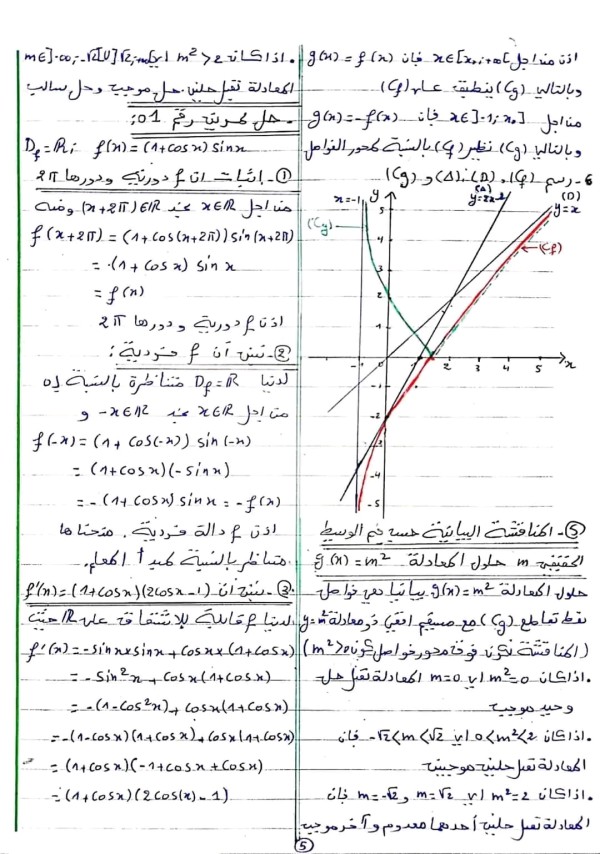 اذن من اجل x∈[x₀;+∞[ فإن g(x) = f(x)
وبالتالي (Cg) ينطبق على (Cf)
من اجل x∈]-1;x₀] فإن g(x)=-f(x)
وبالتالي (Cg) نظير (Cf) بالنسبة لمحور الفواصل
6- رسم (Cf)، (D)، (Δ) و (Cg)
x=-1
y
(Δ)
y=2x-2
(D)
y=x
(Cg)
(Cf)
5
4
3
2
1
-1 0 1 2 3 4 5 x
-1
-2
-4
-5
⑤- المناقشة البيانية حسب قيم الوسيط
الحقيقي m حلول المعادلة g(x) = m²
حلول المعادلة g(x)=m² بيانيا هي فواصل
نقط تقاطع (Cg) مع مستقيم افقي ذو معادلة y=m²
(المناقشة تكون فوق محور فواصل كون m²>0)
.اذا كان m²=0 اي m=0 المعادلة تقبل حل
وحيد موجب
.اذا كان 0<m²<2 اي -√2<m<√2 فإن
المعادلة تقبل حلين موجبين
.اذا كان m²=2 اي m=√2 و m=-√2 فإن
المعادلة تقبل حلين أحدهما معدوم وآخر موجب
.اذا كان m²>2 اي m∈]-∞;-√2[∪]√2;+∞[
المعادلة تقبل حلين حل موجب وحل سالب
- حل تمرين رقم 01:
D_f=ℝ; f(x)=(1+cosx) sinx
①- إثبات ان f دورية ودورها 2π
من اجل x∈ℝ نجد (x+2π)∈ℝ ومنه
f(x+2π)=(1+cos(x+2π))sin(x+2π)
= (1+cosx) sinx
= f(x)
اذن f دورية و دورها 2π
②- نبين أن f فردية:
لدينا D_f=ℝ متناظرة بالنسبة لـ 0
من اجل x∈ℝ نجد -x∈ℝ و
f(-x)=(1+cos(-x)) sin(-x)
= (1+cosx)(-sinx)
= -(1+cosx) sinx = -f(x)
اذن f دالة فردية. منحناها
متناظر بالنسبة لمبدأ المعلم.
③- نبين أن f'(x)=(1+cosx)(2cosx-1)
لدينا f قابلة للإشتقاق على ℝ حيث
f'(x)=-sinx×sinx+cosx×(1+cosx)
= -sin²x + cosx(1+cosx)
= -(1-cos²x)+cosx(1+cosx)
=-(1-cosx)(1+cosx)+cosx(1+cosx)
= (1+cosx)(-1+cosx+cosx)
= (1+cosx)(2cos(x)-1)
5